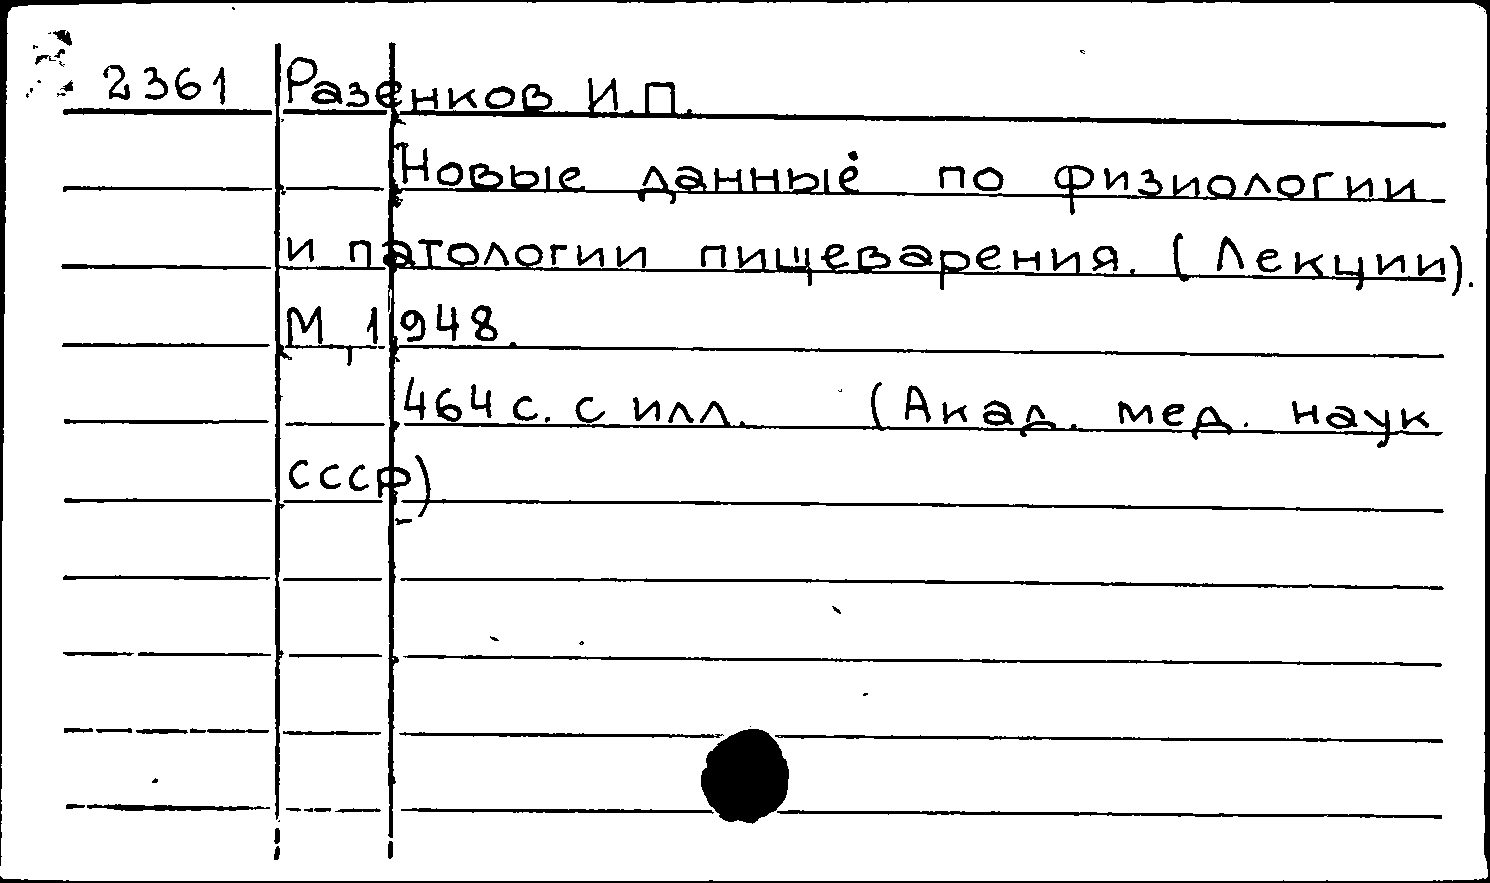 2361 Разенков И.П.
Новые данные по физиологии
и патологии пищеварения. (Лекции).
М, 1948.
464 с. с илл. (Акад. мед. наук
СССР)